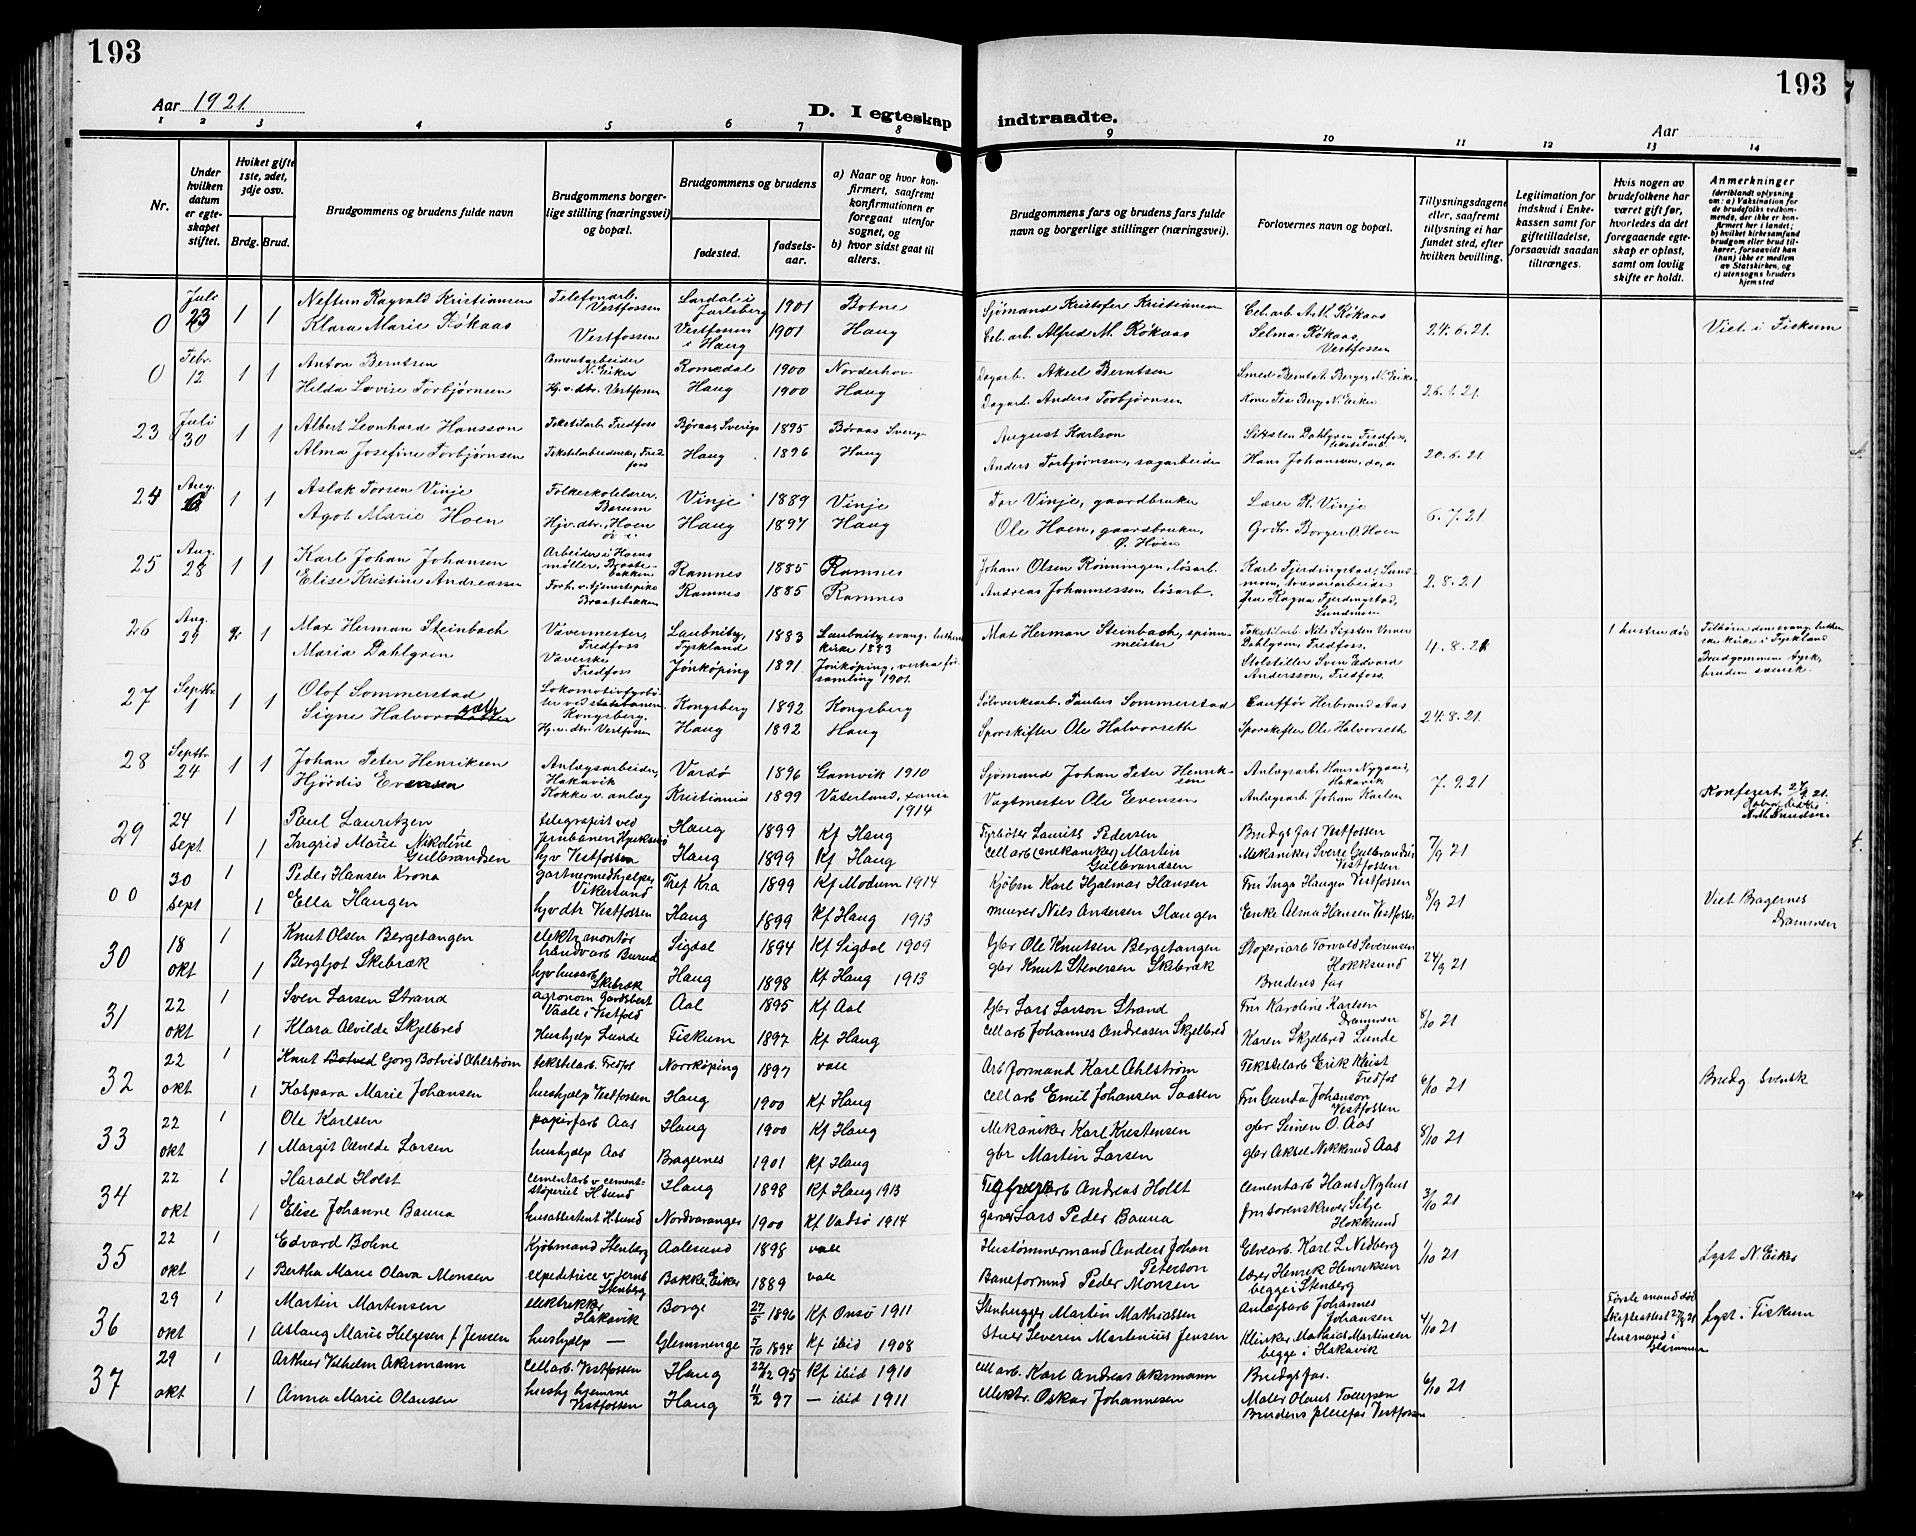 193
193
Aar 1921.
D. I egteskap indtraadte.
Aar
1 2 3 4 5 6 7 8 9 10 11 12 13 14
Nr.
Under hvilken datum er egteskapet stiftet.
Hvilket gifte 1ste, 2det, 3dje osv.
Brdg. Brud.
Brudgommens og brudens fulde navn
Brudgommens borgerlige stilling (næringsvei) og bopæl.
Brudgommens og brudens
fødested.
fødselsaar.
a) Naar og hvor konfirmert, saafremt konfirmationen er foregaat utenfor sognet, og
b) hvor sidst gaat til alters.
Brudgommens fars og brudens fars fulde navn og borgerlige stillinger (næringsvei).
Forlovernes navn og bopæl.
Tillysningsdagene eller, saafremt tillysning ei har fundet sted, efter hvilken bevilling.
Legitimation for indskud i Enkekassen samt for giftetilladelse, forsaavidt saadan tiltrænges.
Hvis nogen av brudefolkene har været gift før, hvorledes da det foregaaende egteskap er opløst, samt om lovlig skifte er holdt.
Anmerkninger
(deriblandt oplysning om: a) Vaksination for de brudefolks vedkommende, der ikke er konfirmert her i landet; b) hvilket kirkesamfund brudgom eller brud tilhører, forsaavidt han (hun) ikke er medlem av Statskirken, og c) utensogns bruders hjemsted
0 Juli 23 1 1 Neftum Ragvald Kristiansen Telefonarb. Vestfossen Lardal i Jarlsberg 1901 Botne Sjømand Kristofer Kristiansen Cel. arb. A. M. Røkaas 24.6.21. Viet i Fiskum
Klara Marie Røkaas Vestfossen Vestfossen i Haug 1901 Haug Cel. arb. Alfred M. Røkaas Selma Røkaas, Vestfossen
0 Febr. 12 1 1 Anton Berntsen Cementarbeider N. Eiker Romedal 1900 Norderhov Dagarb. Aksel Berntsen Smed Bernt A. Berger, N. Eiker 26.1.21.
Hilda Lovise Torbjørnsen Hj. v. dtr. Vestfossen Haug 1900 Haug Dagarb. Anders Torbjørnsen Kone Tea Berg N. Eiker
23 Juli 30 1 1 Albert Leonhard Hansson Tekstilarb. Fredfoss Børaas, Sverige 1895 Børaas Sverig. August Karlson Sixsten Dahlgren Fredfoss, tekstilarb. 20.6.21
Alma Josefine Torbjørnsen Tekstilarbeiderske, Fredfoss Haug 1896 Haug Anders Torbjørnsen, sagarbeider Hans Johansen, do, o
24 Aug. 6 1 1 Aslak Torsen Vinje Folkeskolelærer, Bærum Vinje 1889 Vinje Tor Vinje, gaardbruker Lærer R. Vinje 6.7.21
Agot Marie Hoen Hjv. dtr., Hoen Haug 1897 Haug Ole Hoen, gaardbruker, Ø. Hoen Grdbr. Borger O. Hoen
25 Aug. 28 1 1 Karl Johan Johansen Arbeider i Hoens møller, Braatebakken Ramnes 1885 Ramnes Johan Olsen Rønningen, løsarb. Karl Fjerdingstad, Sundmoen, væverarbeider 2.8.21
Elise Kristine Andreassen Forh. v. tjenestepike Braatebakken Ramnes 1885 Ramnes Andreas Johannessen, løsarb. fru Ragna Fjerdingstad, Sundmoen
26 Aug. 29 2 1 Max Herman Steinbach Vævermester, Fredfoss Laubnitz, Tyskland 1883 Laubnitz evang. luthersk kirke 1893 Max Herman Steinbach, spinnmeister Tekstilarb. Nils Sixsten Verner Dahlgren, Fredfoss. 4.8.21 1 hustru død Tilhører den evang. lutherske kirke i Tyskland
Maria Dahlgren Væverske Fredfoss Jönköping 1891 Jönköping, vestra församling 1901. Stolstiller Sven Edvard Andersson, Fredfoss. Brudgommen tysk, bruden svensk.
27 Septbr. 1 1 1 Olof Sommerstad Lokomotivfyrbøter ved statsbanen Kongsberg. Kongsberg 1892 Kongsberg Sølvverksarb. Paulus Sommerstad Chauffør Herbrand Aas 24.8.21.
Signe Halvorseth Hj. v. dtr. Vestfossen Haug 1892 Haug Sporskifter Ole Halvorseth Sporskifter Ole Halvorseth
28 Septbr. 24 1 1 Johan Peter Henriksen Anlægsarbeider, Hakavik Vardø 1896 Gamvik 1910 Sjømand Johan Peter Henriksen Anlægsarb. Hans Nygaard, Hakavik 7.9.21
Hjørdis Evensen Kokke v. anlæg Kristiania 1899 Vaterland, x.ania 1914 Vagtmester Ole Evensen Anlægsarb. Johan Karlsen Konfezert. 27/9 21.
29 24 Sept 1 Paul Lauritzen telegrafist ved Jernbanen Hokksund Haug 1899 Kf Haug Fyrbøter Laurits Pedersen Brudgs far Vestfossen 7/9 21
1 Ingrid Marie Nikoline Gulbrandsen hjv Vestfossen Haug 1899 Kf Haug Cell arb (mekaniker) Martin Gulbrandsen Mekaniker Sverre Gulbrandsen Vestfossen
00 30 Sept 1 Peder Hansen Krona Gartnermedhjelper Vikersund Tref Kra 1899 Kf Modum 1914 Kjøbm Karl Hjalmar Hansen Fru Inga Haugen Vestfossen 8/9 21 Viet Bragernes Drammen
1 Ella Haugen hjv dtr Vestfossen Haug 1899 Kf Haug 1913 murer Nils Andersen Haugen Enke Alma Hansen Vestfossen
30 18 okt 1 Knut Olsen Bergetangen elektr montør Sigdal 1894 Kf Sigdal 1909 Gbr Ole Knutsen Bergetangen Støperiarb Torvald Severensen Hokksund 24/9 21
1 Bergljot Skibræk hjv husarb Skibræk Haug 1898 Kf Haug 1913 gbr Knut Stenersen Skibræk Brudens far
31 22 okt 1 Sven Larsen Strand agronom Gardsbest Vaale i Vestfold Aal 1895 Kf Aal Gbr Lars Larson Strand Fru Karoline Karlsen Drammen 8/10 21
1 Klara Alvilde Skjelbred Hushjelp Lunde Fiskum 1897 Kf Haug Cell arb Johannes Andreasen Skjelbred Karen Skjelbred Lunde
32 22 okt 1 Knut Botved Georg Botvid Ahlström tekstilarb. Fredfos Norrköping 1897 vale Arb formand Karl Ahlström Tekstilarb Erik Kvist Fredfos 6/10 21 Brudg Svensk
1 Kaspara Marie Johansen hushjælp Vestfossen Haug 1900 Kf Haug Cell arb Emil Johansen Saasen Fru Gunda Johanson Vestfossen
33 22 okt 1 Ole Karlsen papirfarb Aas Haug 1900 Kf Haug Mekaniker Karl Kristensen gbr Simen O. Aas 8/10 21
1 Margit Alvilde Larsen hushjælp Aas Bragernes 1901 Kf Haug gbr Martin Larsen gbr Aksel Nikkerud Aas
34 22 okt 1 Harald Holst cementarb v. cementstøperiet H.sund Haug 1898 Kf Haug 1913 Teglverkarb Andreas Holst Cementarb Hans Myhus 3/10 21
1 Elise Johanne Bauna husassistent H.sund Nordvaranger 1900 Kf Vadsø 1914 garver Lars Peder Bauna fru sorenskriver Silje Hokksund
35 22 okt 1 Edvard Bohne Kjøbmand Stenberg Aalesund 1898 vale Hustømmermand Anders Johan Peterson Elvearb. Karl L. Nedberg 1/10 21 Lyst N. Eiker
1 Bertha Marie Olava Monsen expeditrice v. jernb Stenberg Bakke, Eiker 1889 vale Baneformand Peder Monsen lærer Henrik Henriksen begge i Stenberg
36 29 okt 1 Martin Martensen elektriker Hakavik Borge 27/5 1896 Kf Onsø 1911 Stenhugger Martin Mathiassen Anlægsarb Johannes Johansen 4/10 21 Første mand død Skifteattest 27/9 21 Lensmand i Glemmen Lyst i Fiskum
1 Aslaug Marie Helgesen f Jensen hushjælp — Glemmenge 7/10 1894 Kf ibid 1908 Stuer Severin Martenius Jensen Klinker Mathias Martinsen begge i Hakavik
37 29 okt 1 Arthur Vilhelm Akermann Cell arb. Vestfossen Haug 22/12 95 Kf ibid 1910 cell arb. Karl Andreas Akermann Brudgs far. 6/10 21
1 Anna Marie Olausen husbj hjemme Vestfossen Haug 11/2 97 — ibid 1911 Mektr. Oskar Johannesen Maler Olaus Tollefsen Brudens pleiefar Vestfossen